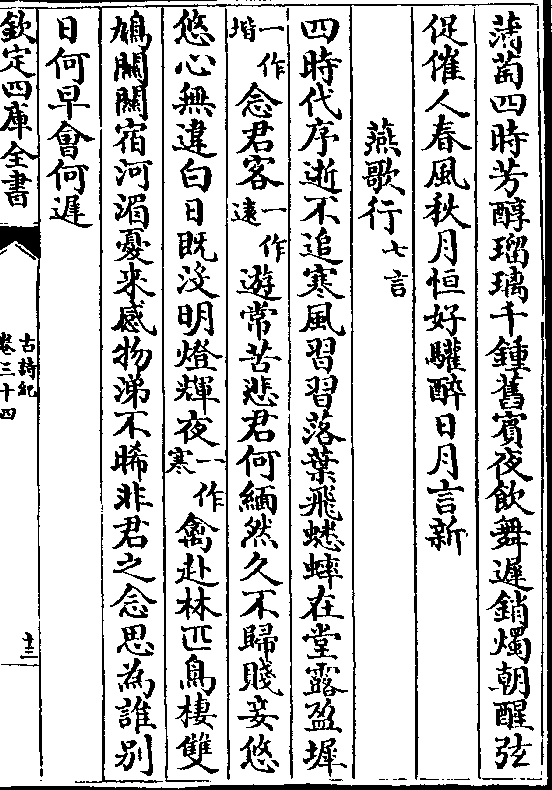 蒲萄四時芳醇瑠璃千鍾舊賓夜飲舞遲銷燭朝醒弦
促催人春風秋月恒好驩醉日月言新
燕歌行七言
四時代序逝不追寒風習習落葉飛蟋蟀在堂露盈墀
一作堦念君客一作遠遊常苦悲君何緬然久不歸賤妾悠
悠心無違白日既沒明燈輝夜一作寒禽赴林匹鳥棲雙
鳩關關宿河湄憂来感物涕不晞非君之念思為誰别
日何早會何遲
欽定四庫全書
古詩紀
卷三十四
十三